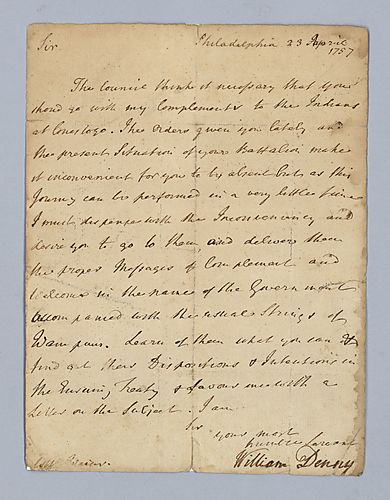 Sir
Philadelphia 23 April
1757
The Council think it necessary that you
shoud go with my Complements to the Indians
at Conestogo. The Orders given you lately and
the present Situation of your Battalion make
it inconvenient for you to be absent but as this
Journey can be performed in a very little time
I must dispense with the Inconveniency and
desire you to go to them and delivere them
the proper Messages of Complement and
Welcome in the name of the Government
accompanied with the usual Strings of
Wampum. Learn of them what you can &
find out their Dispositions & Intentions in
the Ensuing Treaty & favour me with a
Letter on the Subject. I am
Sir
your most
humble Servant
William Denny